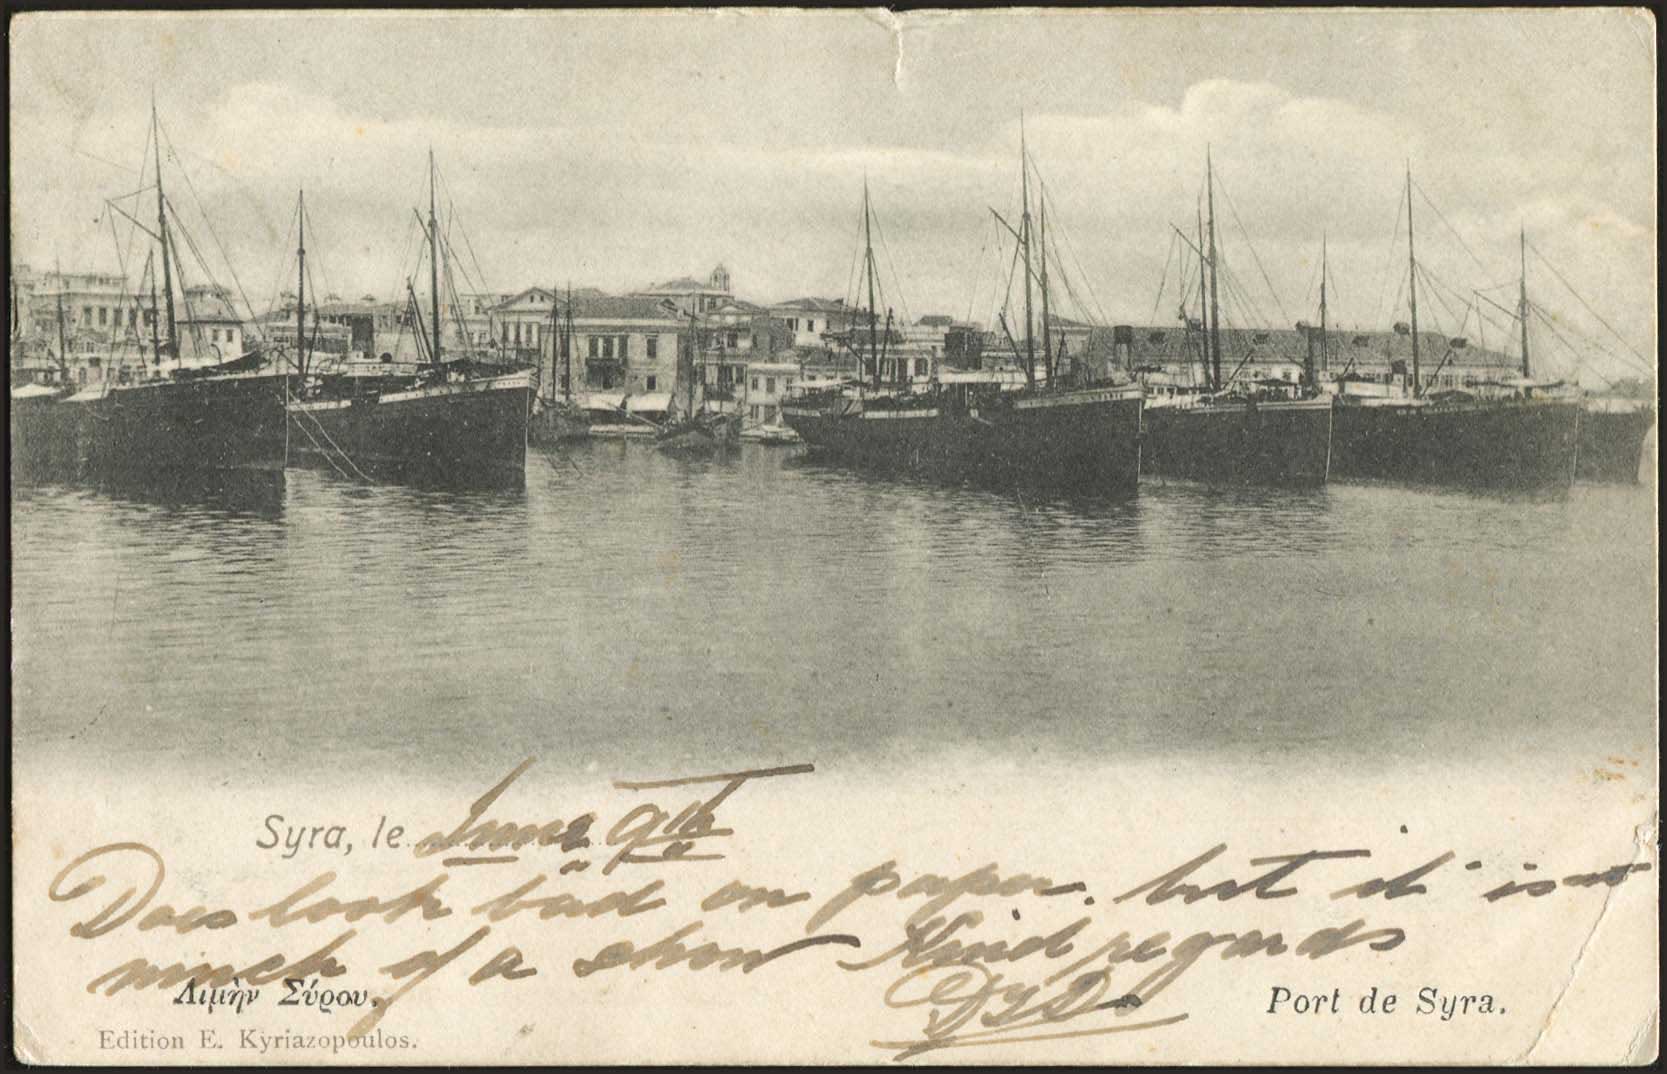 Syra, le June 9th
Does look bad on paper. but it isnt
much of a show Kind regards
Λιμὴν Σύρου.
Port de Syra.
Edition E. Kyriazopoulos.